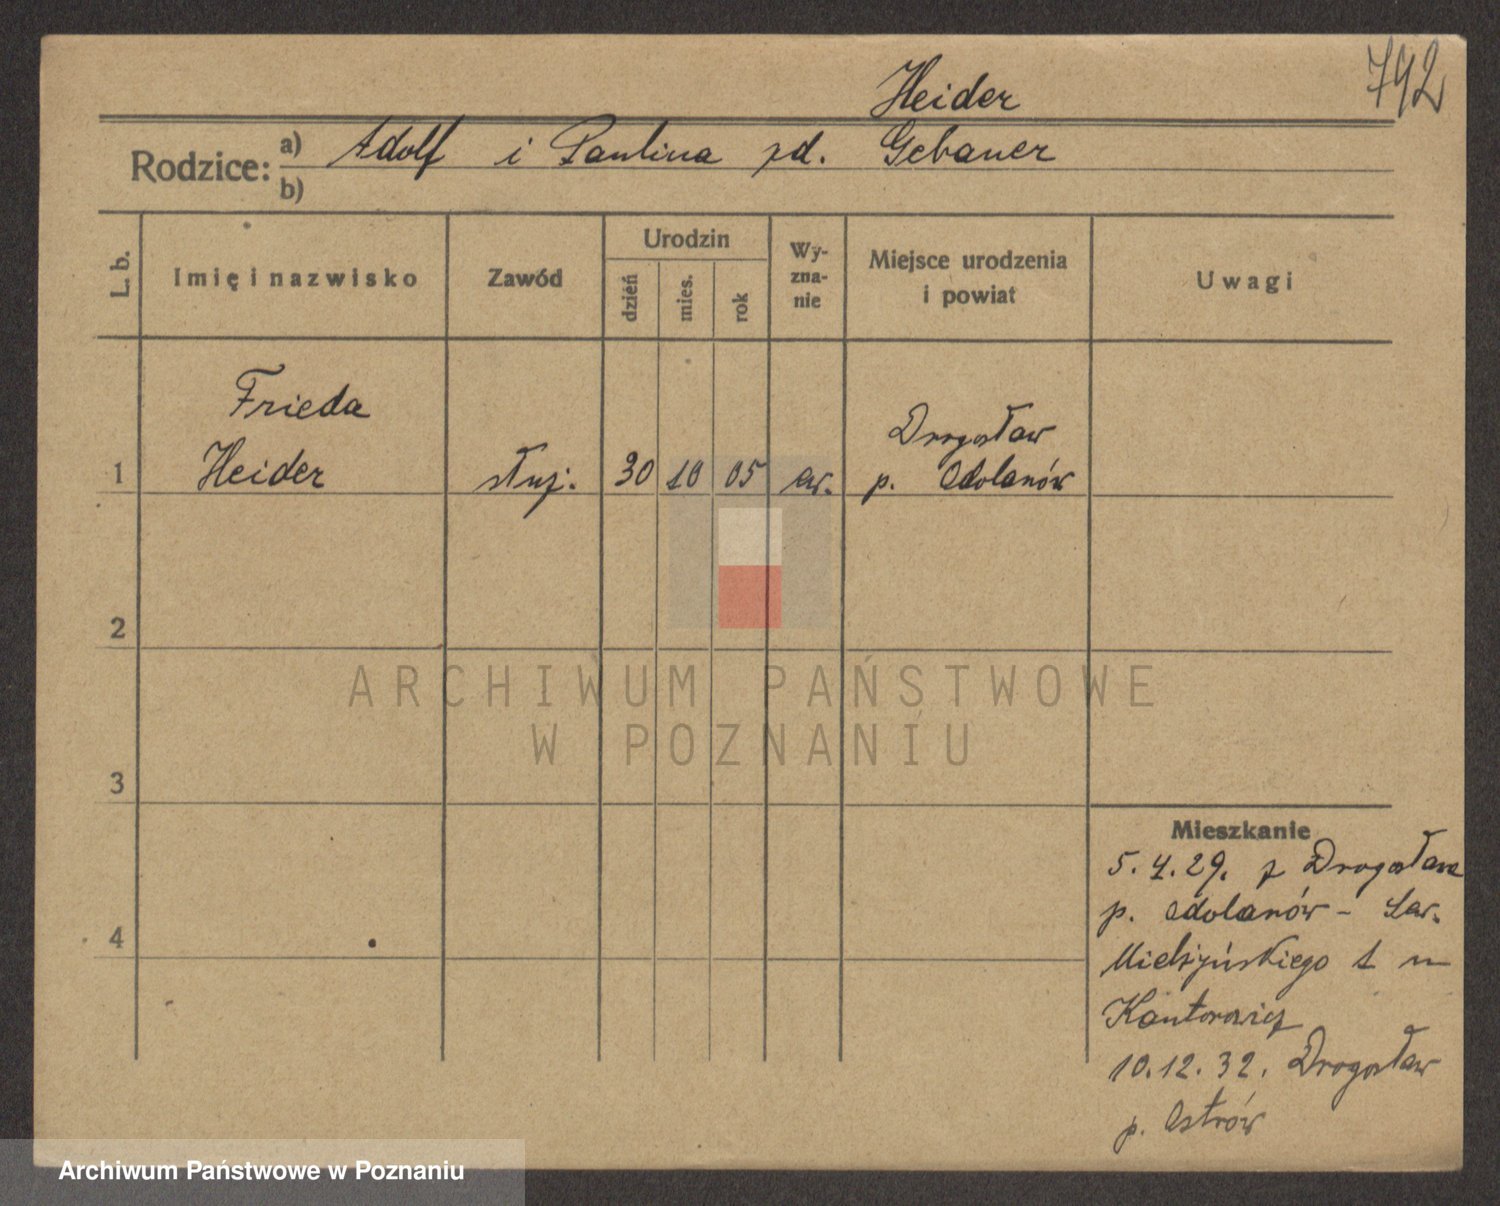 792
Heider
Rodzice: a) Adolf i Paulina zd. Gebauer
b)
L. b.
Imię i nazwisko
Zawód
Urodzin
dzień
mies.
rok
Wy-
zna-
nie
Miejsce urodzenia
i powiat
Uwagi
Frieda
Drogosław
1 Heider służ. 30 10 05 ew. p. Odolanów
2
ARCHIWUM PAŃSTWOWE
W POZNANIU
3
Mieszkanie
5.4.29. z Drogosława
p. Odolanów -
4
Mielżyńskiego 1 m
Kantorowicz
10.12.32. Drogosław
p. Ostrów
Archiwum Państwowe w Poznaniu